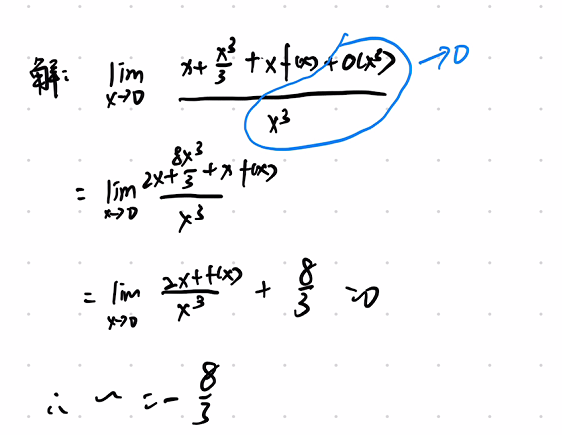 解: lim x→0 (x + x³/3 + x f(x) + o(x³)) / x³ → 0
= lim x→0 (2x + 8x³/3 + x f(x)) / x³
= lim x→0 (2x + f(x)) / x³ + 8/3 = 0
∴ ~ = - 8/3